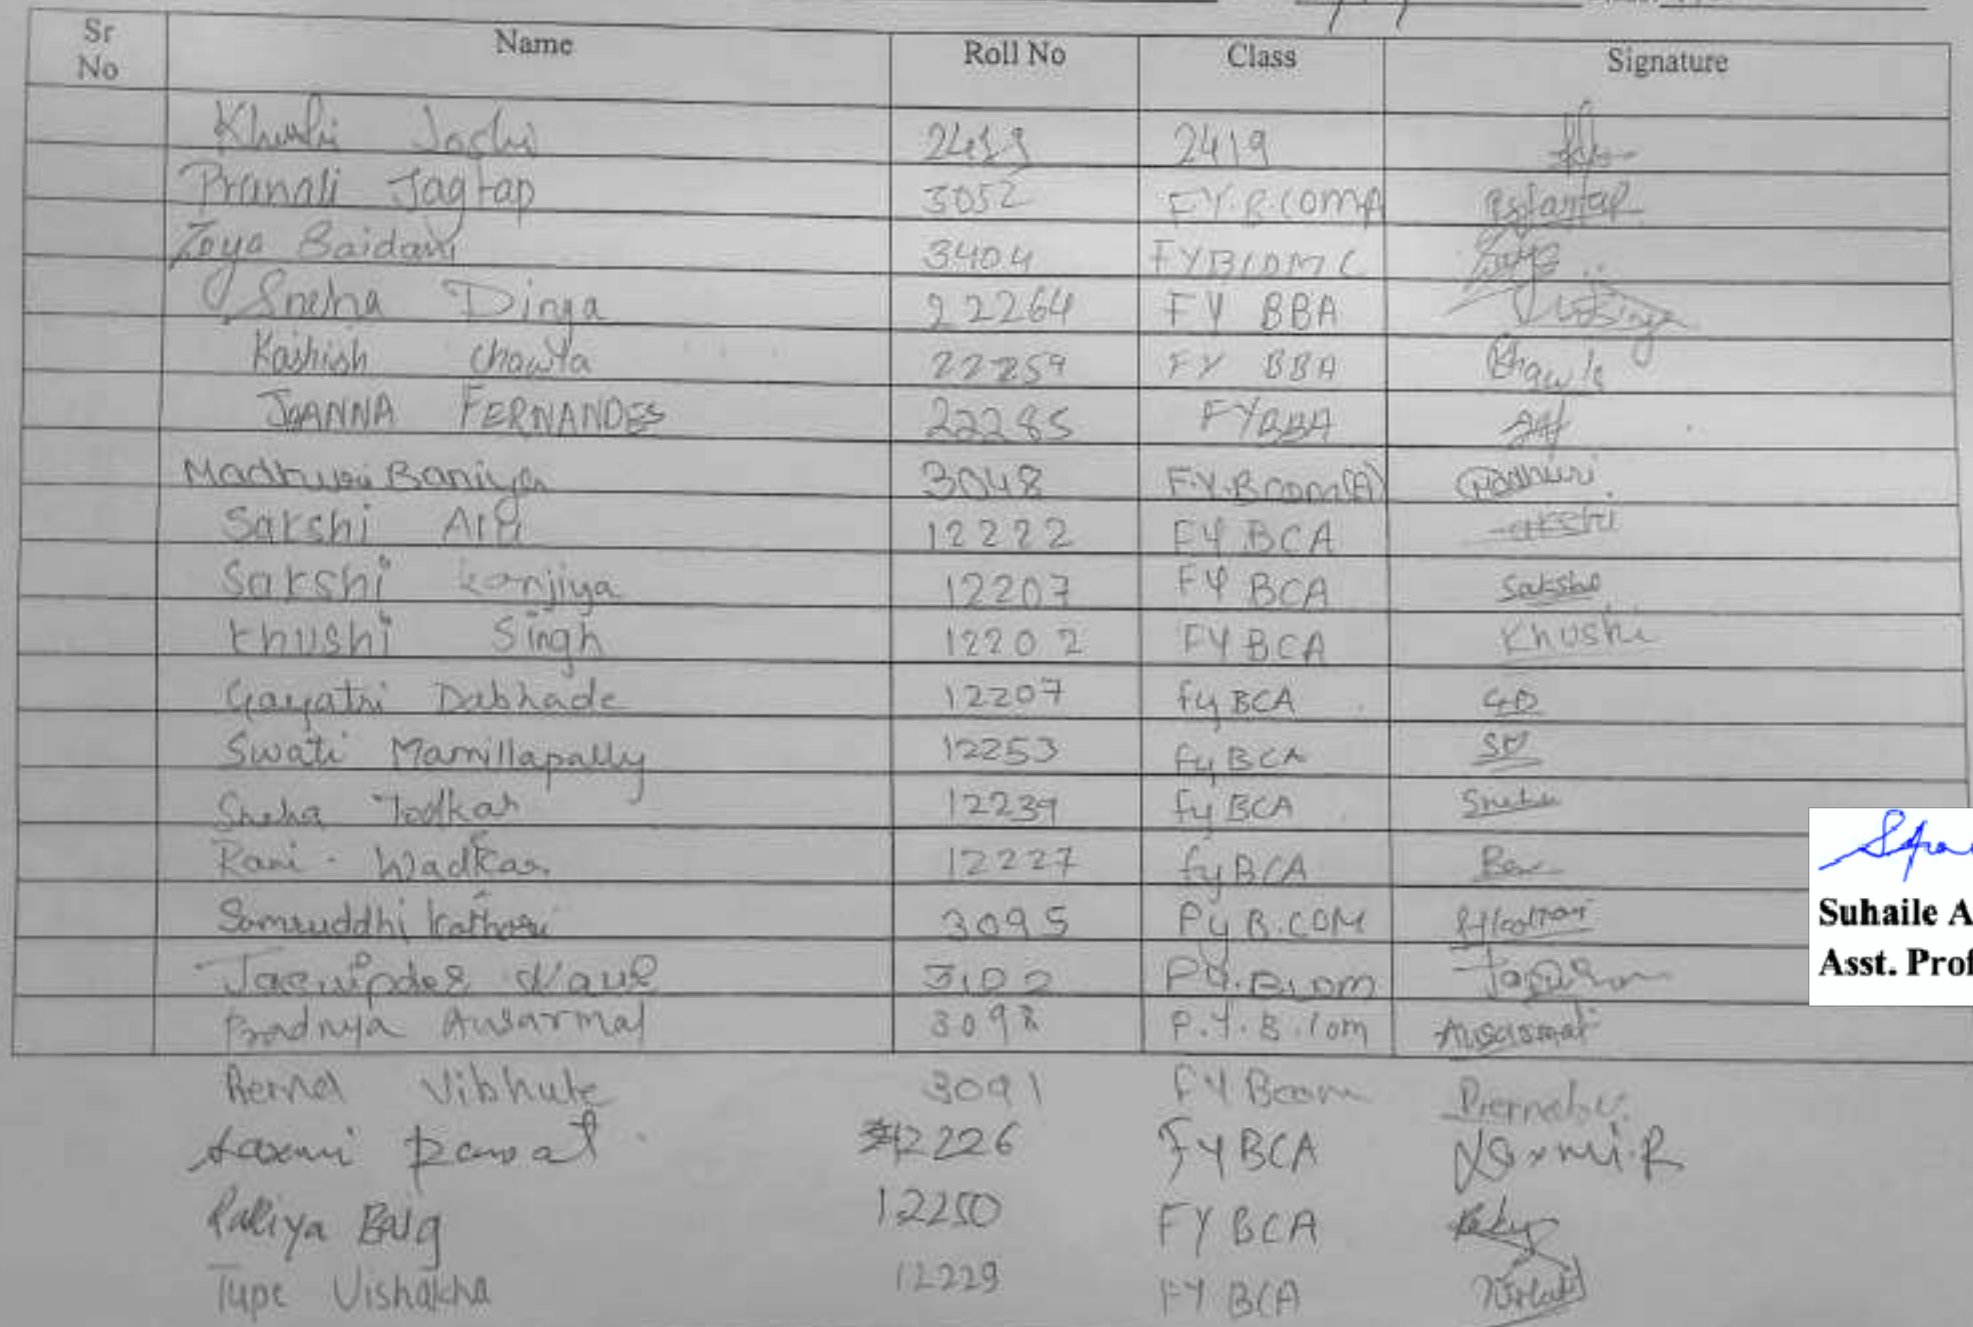 Sr No Name Roll No Class Signature
Khushi Joshi 2419 2419
Pranali Jagtap 3052 FY.B.COMA
Zoya Saidani 3404 FYBCOM C
Sneha Dinga 22264 FY BBA
Kashish Chawla 22259 FY BBA
JOANNA FERNANDES 22285 FYBBA
Madhuri Baniya 3048 F.Y.Bcom(A) Madhuri
Sakshi 12222 FY BCA
Sakshi Kanjiya 12207 FY BCA Sakshi
Khushi Singh 12202 FY BCA Khushi
Gayatri Dabhade 12207 fy BCA GD
Swati Mamillapally 12253 fy BCA SM
Sneha Todkar 12239 fy BCA Sneha
Rani - Wadkar 12227 fy BCA
Samruddhi Kothari 3095 Fy B.COM
Kaur 3102 FY.B.com
Pradnya Ausarmal 3098 F.Y.B.Com Ausarmal
Vibhute 3091 FY Bcom
Laxmi Rawat 12226 FY BCA Laxmi.R
Baig 12250 FY BCA
Tupe Vishakha 12229 FY BCA
Suhaile A
Asst. Prof